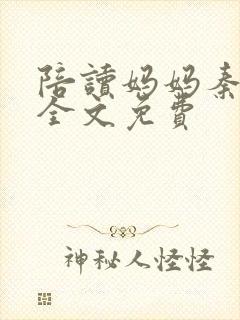 陪讀妈妈秦
全文免費
神秘人怪怪